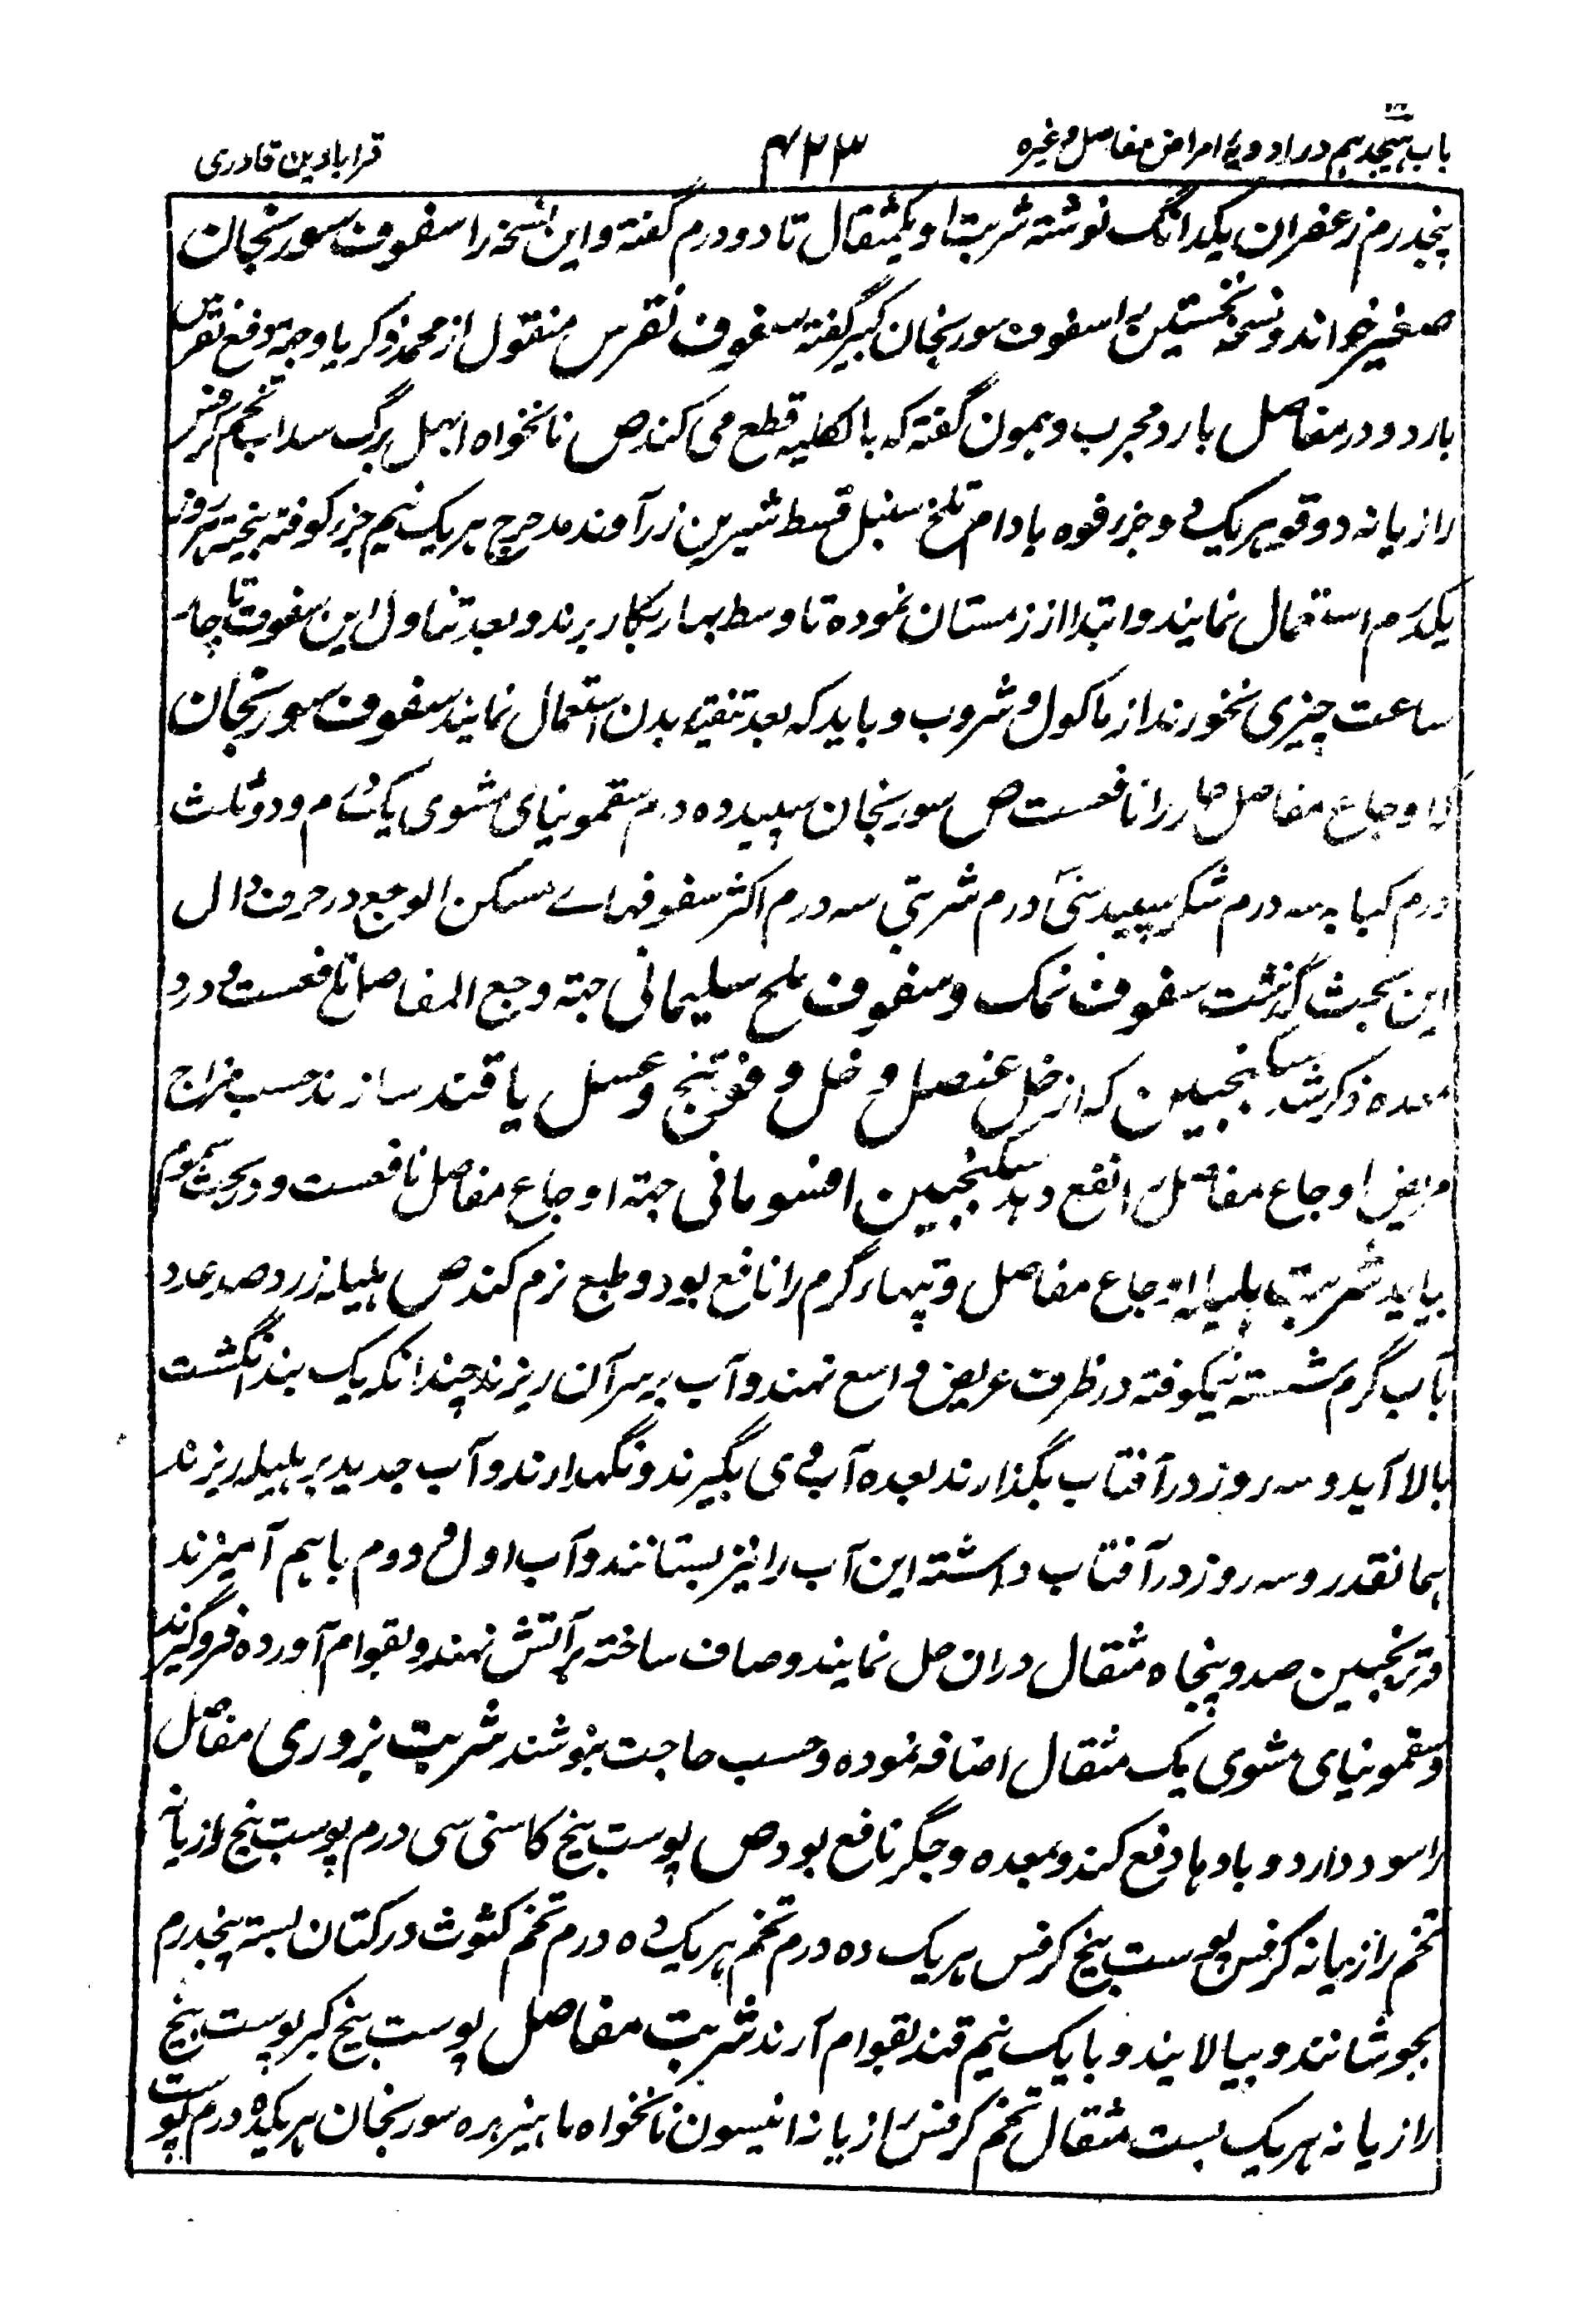 باب هیجدهم در ادویهٔ امراض مفاصل وغیره ۴۲۳ قرابادین قادری
پنجدرم زعفران یکدانگ نوشته شربتاو یکمثقال تا دو درم گفته و این نسخه را سفوف سورنجان
صغیر خواند و نسخهٔ نخستین را سفوف سورنجان کبیر گفته سفوف نقرس منقول از محمد ذکریا وجهة دفع نقرس
بارد و در مفاصل بارد مجرب و همون گفته که بالکلیه قطع می کند ص نانخواه ابهل برگ سداب تخم کرفس
رازیانه دوقو هریک دو جزر فوه بادام تلخ سنبل قسط شیرین زرآوند مدحرج هریک نیم جزر کوفته بیخته هرروز
یکدرم استعمال نمایند و ابتدا از زمستان نموده تا وسط بهار بکار برند و بعد تناول این سفوف تا چار
ساعت چیزی نخورند از ماکول و مشروب و باید که بعد تنقیهٔ بدن استعمال نمایند سفوف سورنجان
که اوجاع مفاصل حار را نافعست ص سورنجان سپید ده درم سقمونیای مشوی یک درم و دو ثلث
درم کبابه سه درم شکر سپید سی درم شربتی سه درم اکثر سفوفهاے مسکن الوجع در حرف دال
این بحث گذشت سفوف نمک و سفوف ملح سلیمانی جهته وجع المفاصل نافعست و در
معده ذکر شد سکنجبین که از خل عنصل و خل و فوتنج و عسل یا قند سازند حسب مزاج
مریض اوجاع مفاصل را نفع دهد سکنجبین افسومالی جهته اوجاع مفاصل نافعست و در بحث سموم
بیاید شربت هلیله اوجاع مفاصل و تپهاے گرم را نافع بود و طبع نرم کند ص هلیله زرد صد عدد
بآب گرم شسته نیمکوفته در ظرف عریض و اسع نهند و آب بر سر آن ریزند چندانکه یک بند انگشت
بالا آید و سه روز در آفتاب بگذارند بعده آب وی بگیرند و نگهدارند و آب جدید بر هلیله ریزند
همانقدر و سه روز در آفتاب داشته این آب را نیز بستانند و آب اول و دوم باهم آمیزند
و ترنجبین صد و پنجاه مثقال دران حل نمایند و صاف ساخته بر آتش نهند و بقوام آورده فرو گیرند
و سقمونیای مشوی یک مثقال اضافه نموده و حسب حاجت بنوشند شربت بزوری مفاصل
را سود دارد و بادها دفع کند و بمعده و جگر نافع بود ص پوست بیخ کاسنی سی درم پوست بیخ رازیانه
تخم رازیانه کرفس پوست بیخ کرفس هریک ده درم تخم هریک ده درم تخم کثوث در کتان بسته پنجدرم
بجوشانند و بپالایند و با یک نیم قند بقوام آرند شربت مفاصل پوست بیخ کبر پوست بیخ
رازیانه هریک بست مثقال تخم کرفس رازیانه انیسون نانخواه ماهیزهره سورنجان هریک ده درم پوست